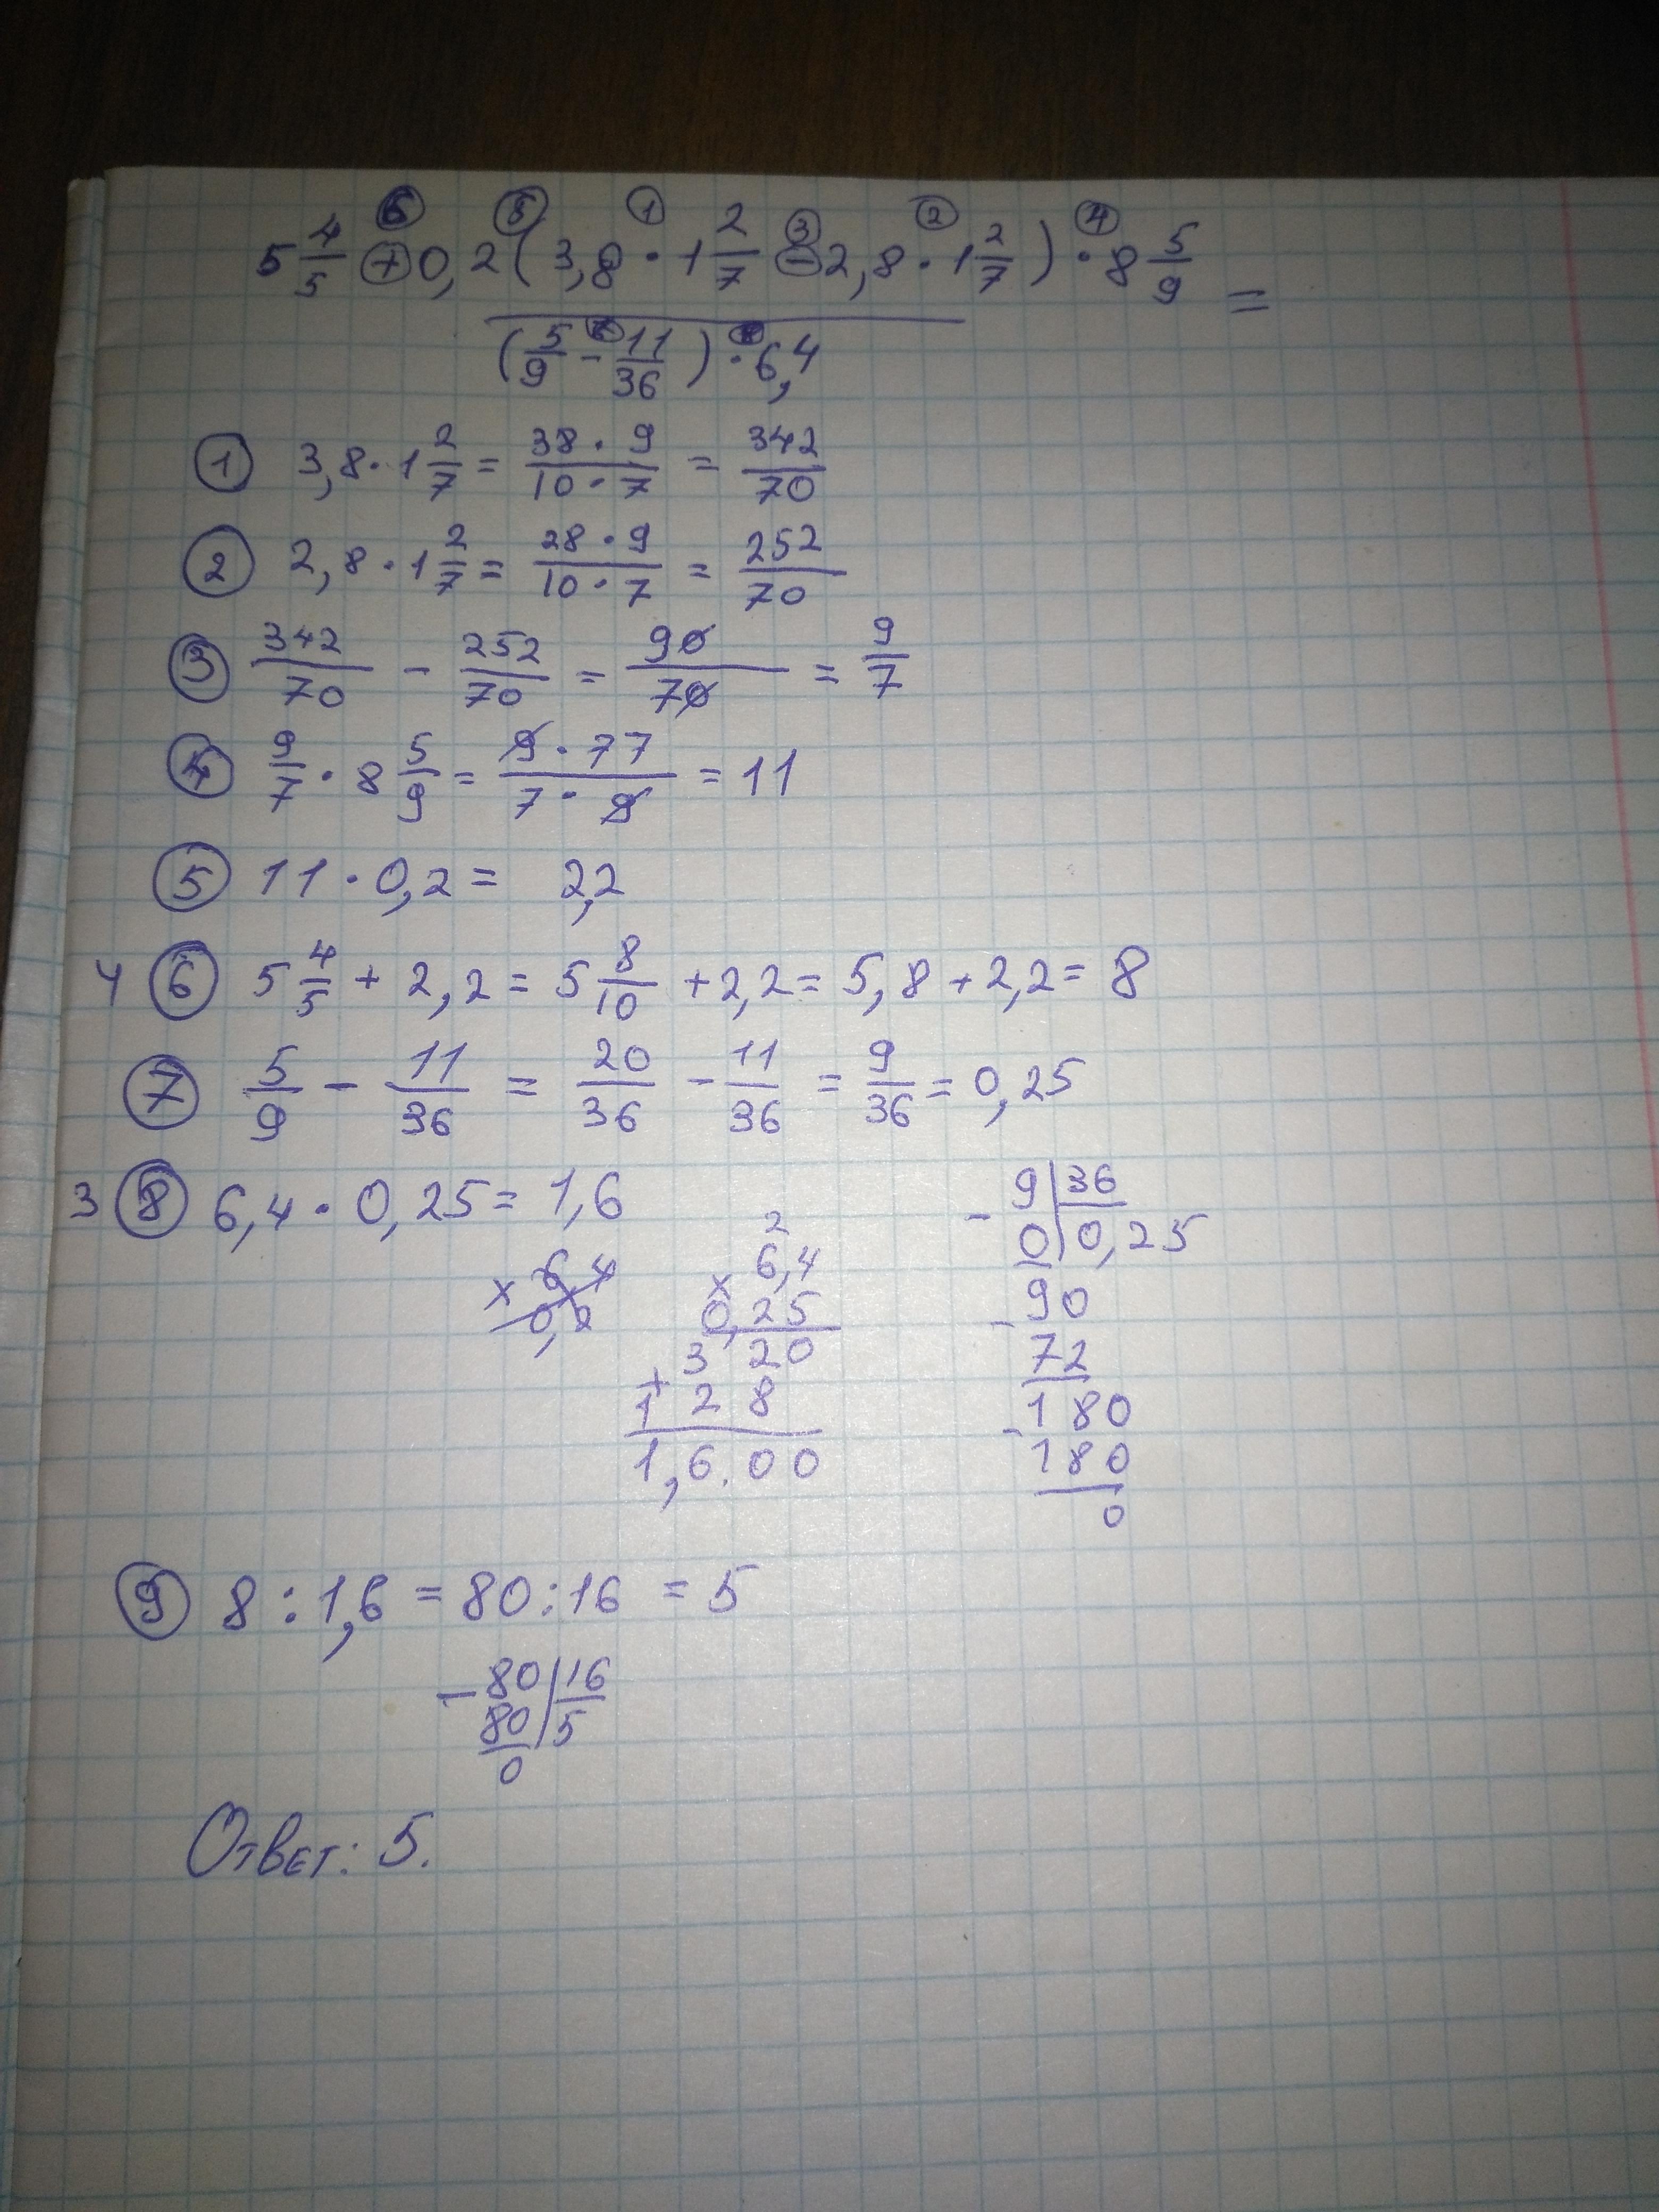 5 4/5 + 0,2 ( 3,8 · 1 2/7 - 2,8 · 1 2/7 ) · 8 5/9 =
( 5/9 - 11/36 ) · 6,4
① 3,8 · 1 2/7 = 38 · 9 / 10 · 7 = 342/70
② 2,8 · 1 2/7 = 28 · 9 / 10 · 7 = 252/70
③ 342/70 - 252/70 = 90/70 = 9/7
④ 9/7 · 8 5/9 = 9 · 77 / 7 · 9 = 11
⑤ 11 · 0,2 = 2,2
ч ⑥ 5 4/5 + 2,2 = 5 8/10 + 2,2 = 5,8 + 2,2 = 8
⑦ 5/9 - 11/36 = 20/36 - 11/36 = 9/36 = 0,25
з ⑧ 6,4 · 0,25 = 1,6
2
6,4
× 0,25
3 20
+ 1 2 8
1,6.00
- 9 | 36
0 | 0,25
- 90
72
- 180
180
0
⑨ 8 : 1,6 = 80 : 16 = 5
- 80 | 16
80 | 5
0
Ответ: 5.